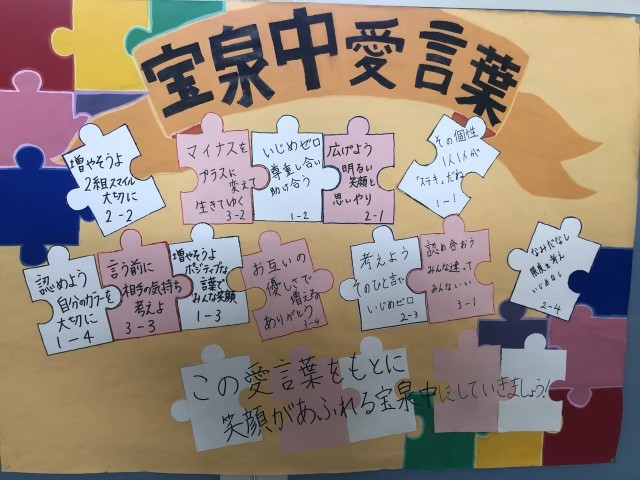 宝泉中愛言葉
増やそうよ
2組スマイル
大切に
2-2
マイナスを
プラスに
変えて
生きてゆく
3-2
いじめゼロ
尊重し合い
助け合う
1-2
広げよう
明るい
笑顔と
思いやり
2-1
その個性
1人1人が
「ステキ」だね
1-1
認めよう
自分のカラーを
大切に
1-4
言う前に
相手の気持ち
考えよ
3-3
増やそうよ
ポジティブな
言葉で
みんな笑顔
1-3
お互いの
優しさで
増える
ありがとう
3-4
考えよう
そのひと言で
いじめゼロ
2-3
認め合おう
みんな違って
みんないい
3-1
なみだなし
限度を考え
いじめなし
2-4
この愛言葉をもとに
笑顔があふれる宝泉中にしていきましょう!